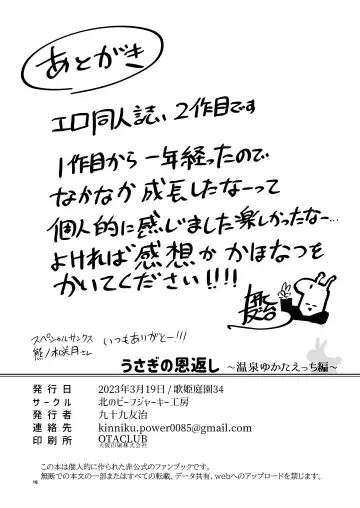 あとがき
エロ同人誌、2作目です
1作目から一年経ったので
なかなか成長したなーって
個人的に感じました楽しかったなー…
よければ感想か かほなつを
かいてください!!!!
友治
スペシャルサンクス
熊ノ木咲月さん
いつもありがとー!!!
うさぎの恩返し ～温泉ゆかたえっち編～
発行日 2023年3月19日 / 歌姫庭園34
サークル 北のビーフジャーキー工房
著者 九十九友治
連絡先 kinniku.power0085@gmail.com
印刷所 OTACLUB
大阪印刷株式会社
この本は個人的に作られた非公式のファンブックです。
無断での本文の一部またはすべての転載、データ共有、webへのアップロードを禁じます。
16